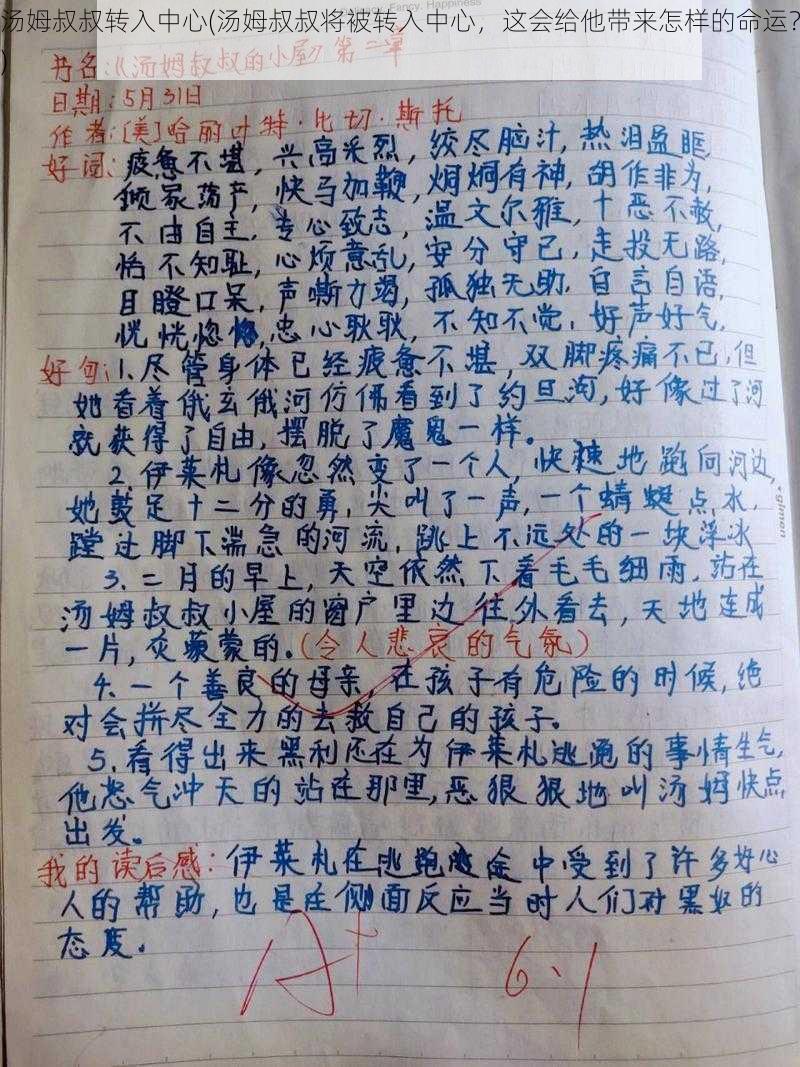 汤姆叔叔转入中心(汤姆叔叔将被转入中心，这会给他带来怎样的命运？
)
Fancy. Happiness
书名：《汤姆叔叔的小屋》第二章
日期：5月31日
作者：[美]哈丽叶特·比切·斯托
好词：疲惫不堪，兴高采烈，绞尽脑汁，热泪盈眶，
倾家荡产，快马加鞭，炯炯有神，胡作非为，
不由自主，专心致志，温文尔雅，十恶不赦，
恬不知耻，心烦意乱，安分守己，走投无路，
目瞪口呆，声嘶力竭，孤独无助，自言自语，
恍恍惚惚，忠心耿耿，不知不觉，好声好气，
好句：1.尽管身体已经疲惫不堪，双脚疼痛不已，但
她看着俄亥俄河仿佛看到了约旦河，好像过了河
就获得了自由，摆脱了魔鬼一样。
2.伊莱札像忽然变了一个人，快速地跑向河边，
她鼓足十二分的勇，尖叫了一声，一个蜻蜓点水，
蹚过脚下湍急的河流，跳上不远处的一块浮冰
3.二月的早上，天空依然下着毛毛细雨，站在
汤姆叔叔小屋的窗户里边往外看去，天地连成
一片，灰蒙蒙的。(令人悲哀的气氛)
4.一个善良的母亲，在孩子有危险的时候，绝
对会拼尽全力的去救自己的孩子。
5.看得出来黑利还在为伊莱札逃跑的事情生气，
他怒气冲天的站在那里，恶狠狠地叫汤姆快点
出发。
我的读后感：伊莱札在逃跑途中受到了许多好心
人的帮助，也是在侧面反应当时人们对黑奴的
态度。
A+ 6.1